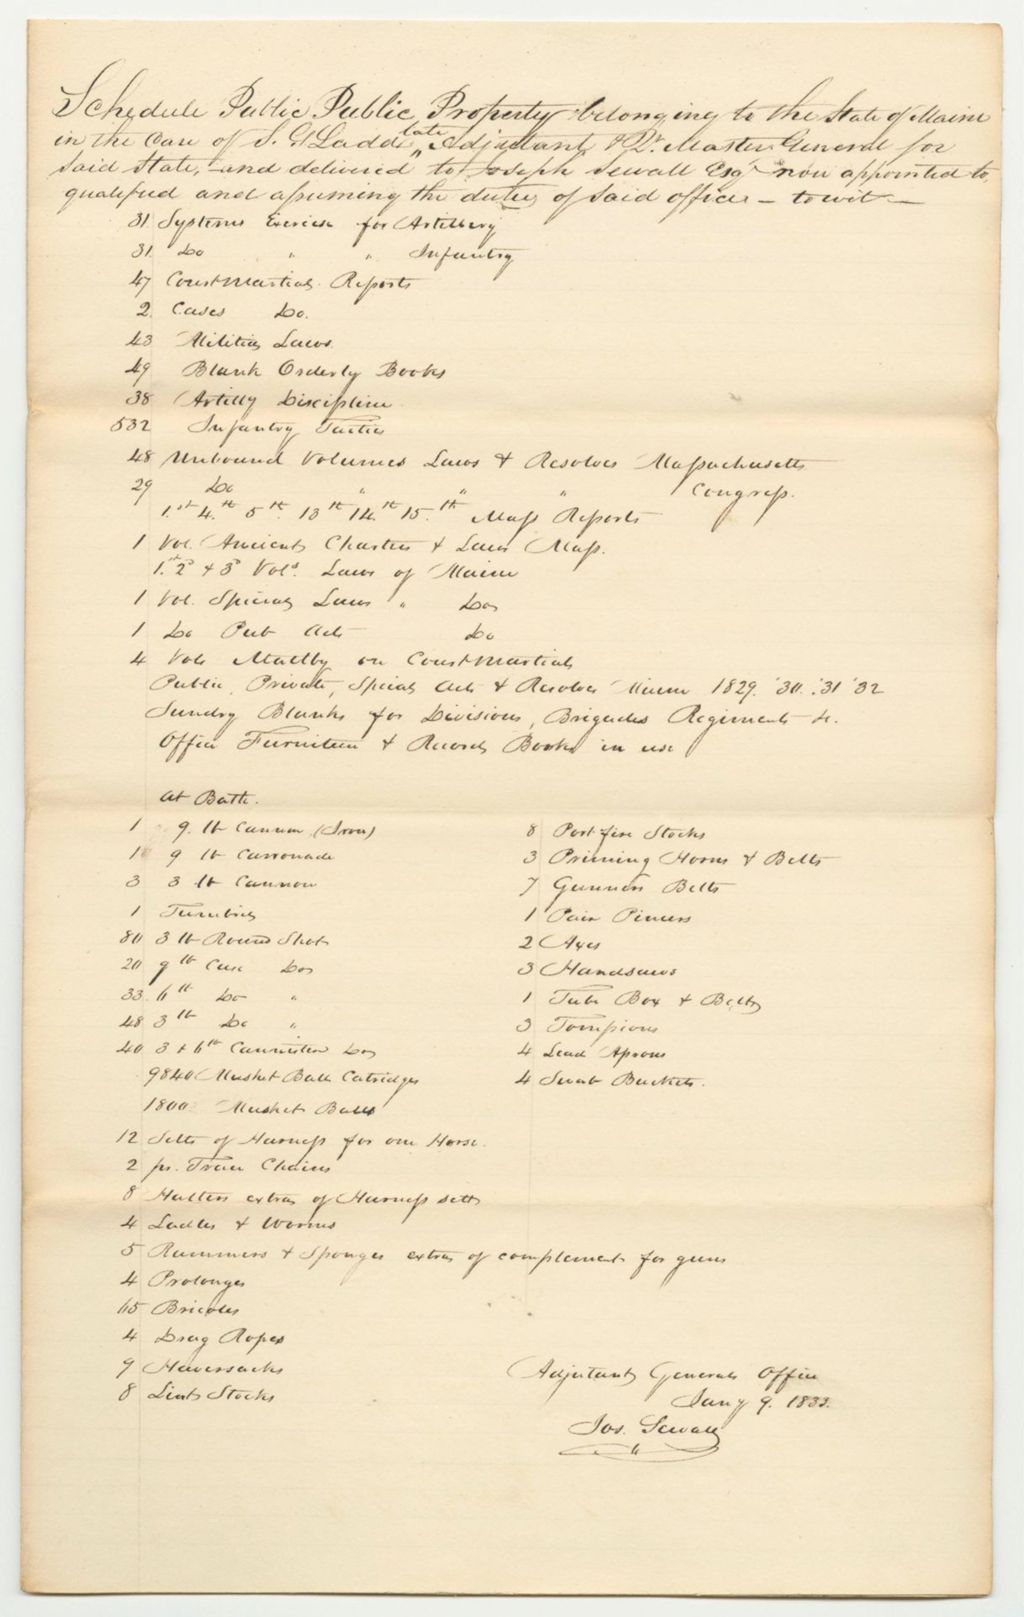 Schedule Public Public Property belonging to the State of Maine
in the Care of S. G Ladd late Adjutant & Qr. Master General for
Said State, and delivered to Joseph Sewall Esqr now appointed to,
qualified and assuming the duties of said offices – to wit –
31 Systems Exercise for Artillery
31 Do " " Infantry
47 Court Martial Reports
2 Cases Do.
43 Militia Laws.
49 Blank Orderly Books
38 Artilly Discipline
532 Infantry Tactics
48 Unbound Volumes Laws & Resolves Massachusetts
29 Do " " " Congress.
1.st 4.th 5th 13th 14th 15.th Mass Reports
1 Vol. Ancient Charters & Laws Mass.
1.st 2d & 3d Vols. Laws of Maine
1 Vol. Special Laws " Do
1 Do Pub Acts Do
4 Vols Maltby on Court Martials
Public, Private, Special Acts & Resolves Maine 1829. '30. '31 '32
Sundry Blanks for Divisions, Brigades Regiments &c.
Office Furniture & Records Books in use
At Bath.
1 9. lb Cannon (Iron)
1 9 lb Carronade
3 3 lb Cannon
1 Tumbril
80 3 lb Round Shot
20 9 lb Case Do
33. 6 lb Do "
48 3 lb Do "
40 3 & 6 lb Cannister Do
9840 Musket Ball Catridges
1800 Musket Balls
12 Setts of Harness for one Horse.
2 pr. Trace Chains
8 Halters extra of Harness setts
4 Ladles & Worms
5 Rammers & Sponges extra of complement for guns
4 Prolonges
65 Bricoles
4 Drag Ropes
9 Haversacks
8 Lint Stocks
8 Port fire Stocks
3 Priming Horns & Belts
7 Gunners Belts
1 Pair Pincers
2 Axes
3 Handsaws
1 Tube Box & Belts
3 Tompions
4 Lead Aprons
4 Swab Buckets.
Adjutant Generals Office
Jany 9. 1833.
Jos. Sewall